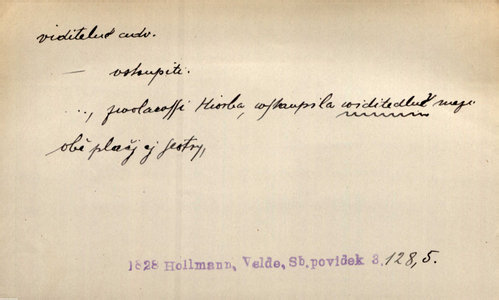 viditelně adv.
— vstoupiti.
.., zwolawssi Norba, wstaupila widitedlně mezi
obě plačj cj sestry,
1828 Hollmann, Velde, Sb.povídek 3. 128, 5.